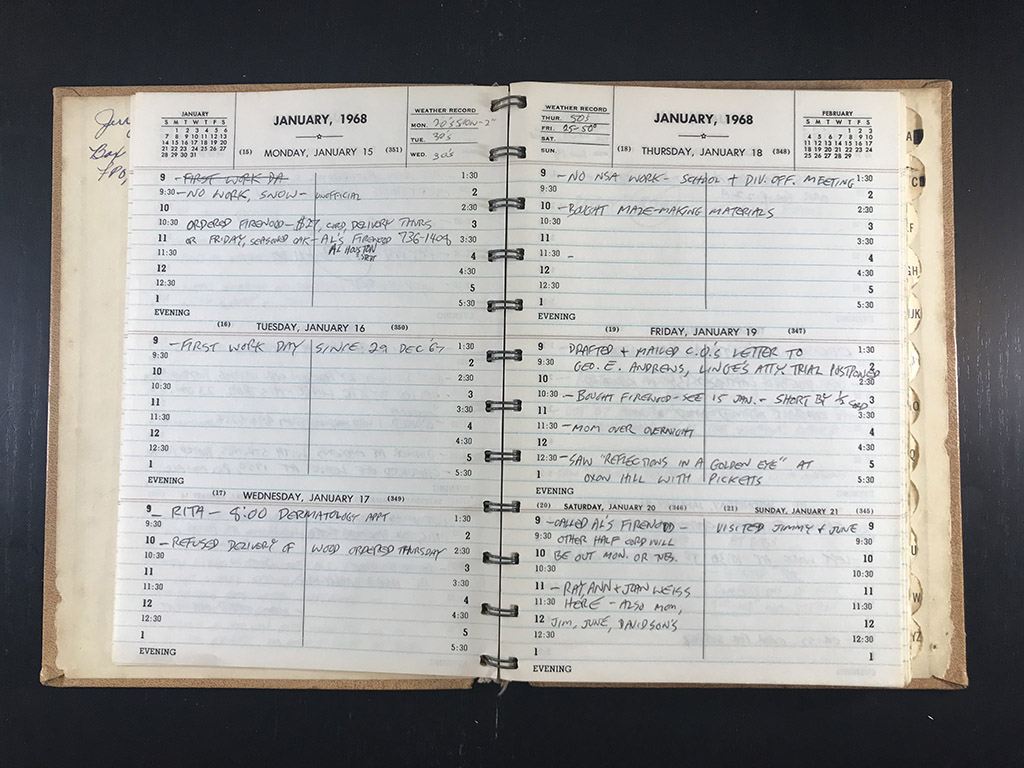 Jerr
Box
FPO,
JANUARY
S M T W T F S
1 2 3 4 5 6
7 8 9 10 11 12 13
14 15 16 17 18 19 20
21 22 23 24 25 26 27
28 29 30 31
JANUARY, 1968
(15) MONDAY, JANUARY 15 (351)
WEATHER RECORD
MON. 30's SNOW-2"
TUE. 30's
WED. 30's
9 - FIRST WORK DA 1:30
9:30 - NO WORK, SNOW - UNOFFICIAL 2
10 2:30
10:30 ORDERED FIREWOOD - $27, CORD, DELIVERY THURS 3
11 OR FRIDAY, SEASONED OAK - AL'S FIREWOOD 736-1404 3:30
11:30 AL HOUSTON 4
12 4:30
12:30 5
1 5:30
EVENING
(16) TUESDAY, JANUARY 16 (350)
9 - FIRST WORK DAY SINCE 29 DEC '67 1:30
9:30 2
10 2:30
10:30 3
11 3:30
11:30 4
12 4:30
12:30 5
1 5:30
EVENING
(17) WEDNESDAY, JANUARY 17 (349)
9 - RITA - 8:00 DERMATOLOGY APPT. 1:30
9:30 2
10 - REFUSED DELIVERY OF WOOD ORDERED THURSDAY 2:30
10:30 3
11 3:30
11:30 4
12 4:30
12:30 5
1 5:30
EVENING
WEATHER RECORD
THUR. 50's
FRI. 25-50°
SAT.
SUN.
JANUARY, 1968
(18) THURSDAY, JANUARY 18 (348)
FEBRUARY
S M T W T F S
1 2 3
4 5 6 7 8 9 10
11 12 13 14 15 16 17
18 19 20 21 22 23 24
25 26 27 28 29
9 - NO NSA WORK - SCHOOL + DIV. OFF. MEETING 1:30
9:30 2
10 - BOUGHT MAZE-MAKING MATERIALS 2:30
10:30 3
11 3:30
11:30 - 4
12 4:30
12:30 5
1 5:30
EVENING
(19) FRIDAY, JANUARY 19 (347)
9 DRAFTED + MAILED C.O.'s LETTER TO 1:30
9:30 GEO. E. ANDREWS, LINGE'S ATTY. TRIAL POSTPONED 2
10 2:30
10:30 - BOUGHT FIREWOOD - SEE 15 JAN. - SHORT BY 1/2 CORD 3
11 3:30
11:30 - MOM OVER OVERNIGHT 4
12 4:30
12:30 - SAW "REFLECTIONS IN A GOLDEN EYE" AT 5
1 OXON HILL WITH PICKETTS 5:30
EVENING
(20) SATURDAY, JANUARY 20 (346) (21) SUNDAY, JANUARY 21 (345)
9 - CALLED AL'S FIREWOOD - VISITED JIMMY + JUNE 9
9:30 OTHER HALF CORD WILL 9:30
10 BE OUT MON. OR TUES. 10
10:30 10:30
11 - RAY, ANN + JOAN WEISS 11
11:30 HERE - ALSO MOM, 11:30
12 JIM, JUNE, DAVIDSONS 12
12:30 12:30
1 1
EVENING
A
C
EF
GH
IJK
O
Q
U
W
YZ